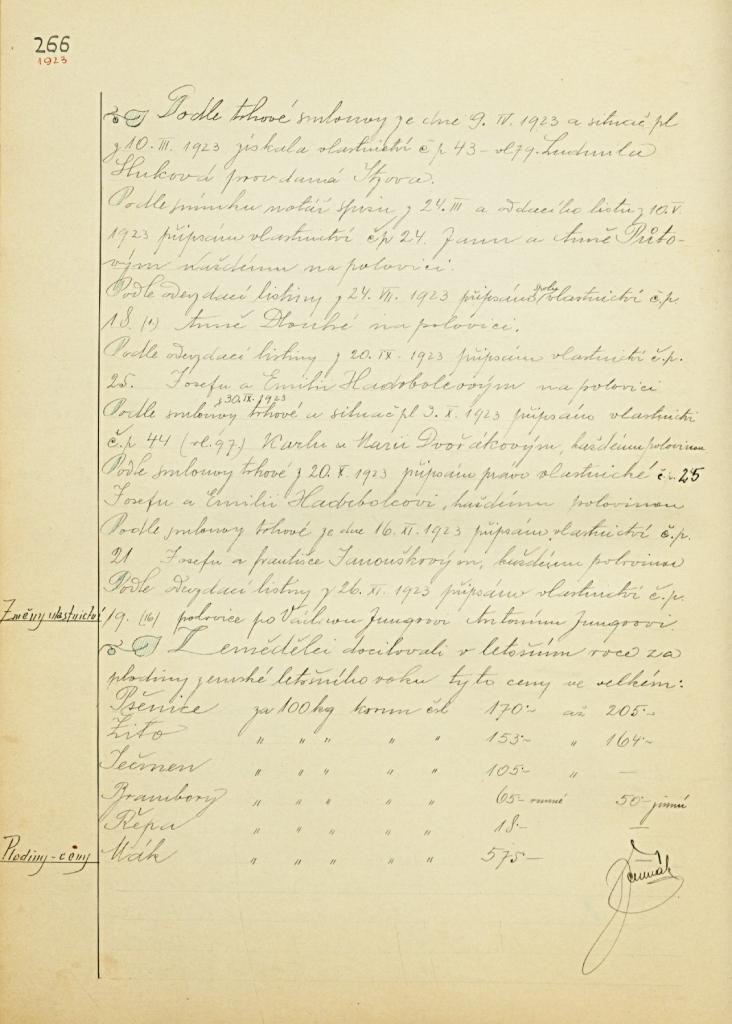 266
1923
Podle trhové smlouvy ze dne 9. IV. 1923 a situač pl
z 10. III. 1923 získala vlastnictví č p 43 – vl 79. Ludmila
Huková provdaná
Podle notář spisu z 24. III a oddacího listu z 10. V.
1923 připsáno vlastnictví čp 24. Janu a Anně Růto-
vým každému na polovici.
Podle odevzdací listiny z 24. VII. 1923 připsáno spolu vlastnictví č. p.
18. (1) Anně Dlouhé na polovici.
Podle odevzdací listiny z 20. IX. 1923 připsáno vlastnictví č. p.
25. Josefu a Emilii na polovici
z 30. IX. 1923
Podle smlouvy trhové a situač pl 3. X. 1923 připsáno vlastnictví
č. p 44 (vl. 97) Karlu a Marii Dvořákovým, každému polovinou
Podle smlouvy trhové z 20. X. 1923 připsáno právo vlastnické č. p. 25
Josefu a Emilii každému polovinou
Podle smlouvy trhové ze dne 16. XI. 1923 připsáno vlastnictví č. p.
21 Josefu a Františce Janouškovým, každému polovinou
Podle odevzdací listiny z 26. XI. 1923 připsáno vlastnictví č. p.
Změny vlastnictví
19. (16) polovice po Václavu Jungrovi Antonínu Jungrovi.
Zemědělci docilovali v letošním roce za
plodiny zemské letošního roku tyto ceny ve velkém:
Pšenice za 100 kg korun čsl 170·- až 205·-
Žito " " " " " 153·- " 164·-
Ječmen " " " " " 105·- " —
Brambory " " " " " 65·- ranné 50·- jinné
Řepa " " " " " 18·- —
Plodiny - ceny
Mák " " " " " 575·-